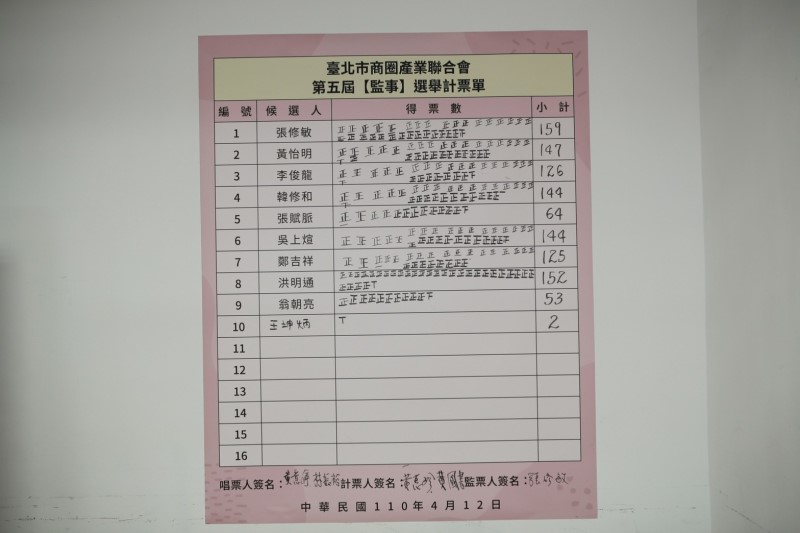 臺北市商圈產業聯合會
第五屆【監事】選舉計票單
編號 候選人 得票數 小計
1 張修敏 159
2 黃怡明 147
3 李俊龍 126
4 韓修和 144
5 張賦脈 64
6 吳上煊 144
7 鄭吉祥 125
8 洪明通 152
9 翁朝亮 53
10 王坤炳 2
11
12
13
14
15
16
唱票人簽名： 計票人簽名： 監票人簽名：
中華民國110年4月12日